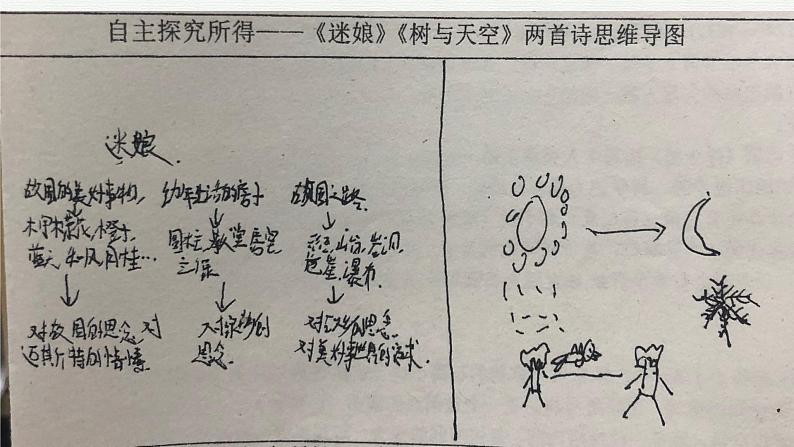 自主探究所得——《迷娘》《树与天空》两首诗思维导图
迷娘.
故国的美好事物,
柠檬花,橙子,
蓝天 和风 月桂…
对故国的思念,对
迈斯特的情愫.
幼年生活的房子
圆柱,敦堂 居室
之深
对家乡的
思念.
故国之路.
山谷,岩洞,
危崖,瀑布.
对故乡的思念.
对美好世界的追求.